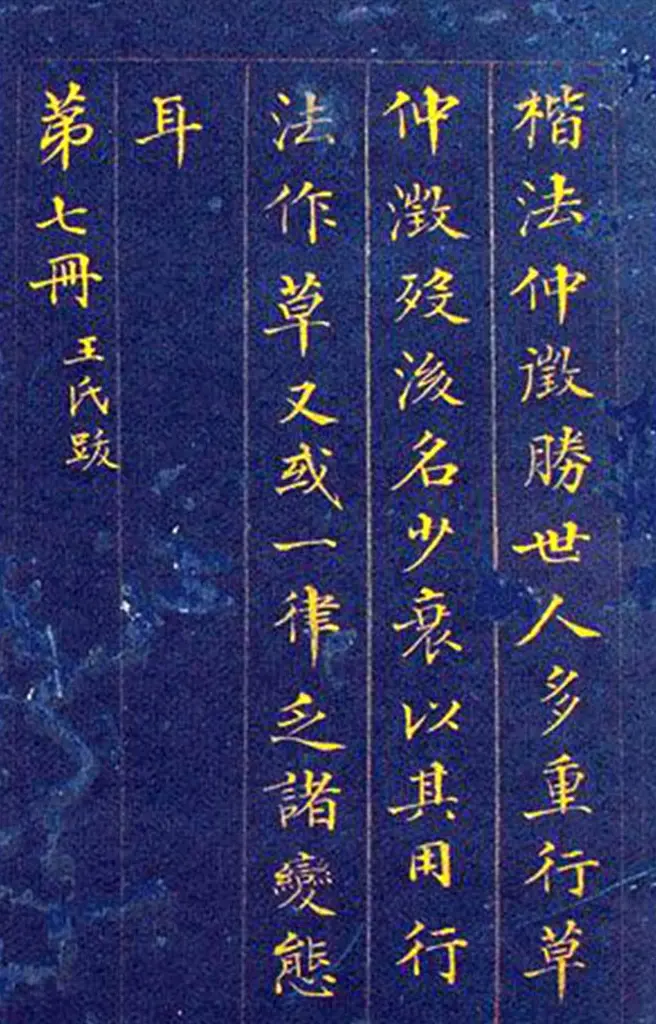 楷法仲徵勝世人多重行草
仲澂歿後名少衰以其用行
法作草又或一律乏諸變態
耳
第七冊王氏跋